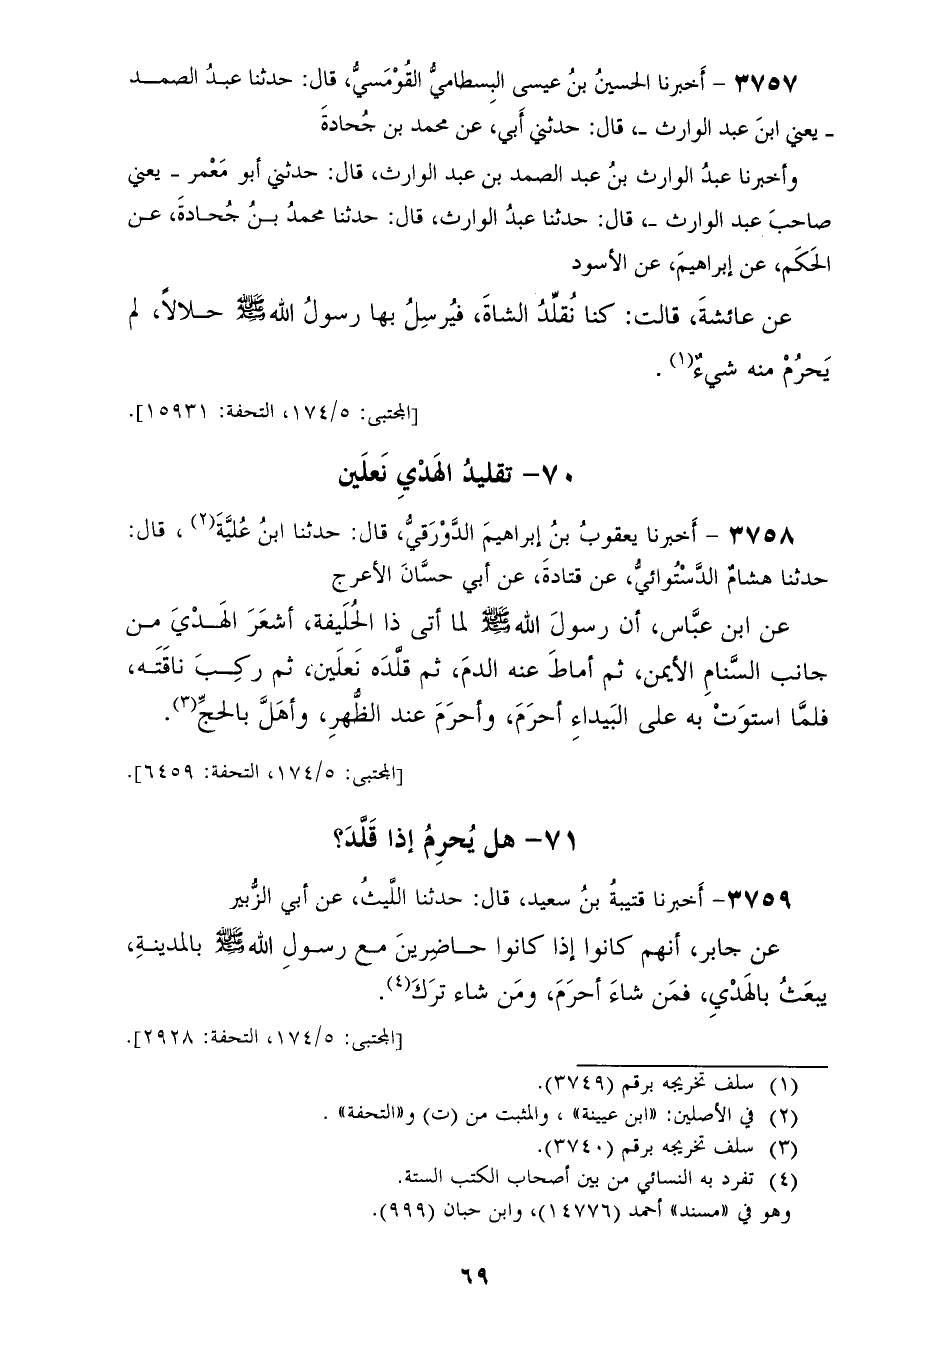 ٣٧٥٧ – أَخبرنا الحسينُ بنُ عيسى البِسطاميُّ القُوْمَسيُّ، قال: حدثنا عبدُ الصمـد
ـ يعني ابنَ عبد الوارث ـ، قال: حدثني أَبي، عن محمد بن جُحادةَ
وأخبرنا عبدُ الوارث بنُ عبد الصمد بن عبد الوارث، قال: حدثني أبو مَعْمر ـ يعني
صاحبَ عبد الوارث ـ، قال: حدثنا عبدُ الوارث، قال: حدثنا محمدُ بـنُ جُحـادةَ، عـن
الحَكَم، عن إبراهيمَ، عن الأسود
عن عائشةَ، قالت: كنا نُقلِّدُ الشاةَ، فيُرسِلُ بها رسولُ اللهﷺ حـلالاً، لم
يَحرُمْ منه شيءٌ(١) .
[المجتبى: ١٧٤/٥، التحفة: ١٥٩٣١].
٧٠– تقليدُ الهَدْيِ نَعلَين
٣٧٥٨ – أَخبرنا يعقوبُ بنُ إبراهيمَ الدَّوْرَقيُّ، قال: حدثنا ابنُ عُليَّةَ(٢) ، قال:
حدثنا هشامٌ الدَّسْتُوائيُّ، عن قتادةَ، عن أبي حسَّانَ الأعرج
عن ابن عبَّاس، أن رسولَ اللهﷺ لما أتى ذا الحُلَيفة، أشعَرَ الهَـدْيَ مـن
جانب السَّنامِ الأيمن، ثم أماطَ عنه الدمَ، ثم قلَّدَه نَعلَين، ثم ركـبَ ناقَتَـه،
فلمَّا استوَتْ به على البَيداءِ أحرَمَ، وأحرَمَ عند الظُّهرِ، وأهَلَّ بالحجِّ(٣).
[المجتبى: ١٧٤/٥، التحفة: ٦٤٥٩].
٧١– هل يُحرِمُ إذا قَلَّدَ؟
٣٧٥٩– أَخبرنا قتيبةُ بنُ سعيد، قال: حدثنا اللَّيثُ، عن أبي الزُّبير
عن جابر، أنهم كانوا إذا كانوا حـاضِرِينَ مـع رسـولِ اللهﷺ بالمدينـةِ،
يبعَثُ بالهَدْيِ، فمَن شاءَ أحرَمَ، ومَن شاء ترَكَ(٤).
[المجتبى: ١٧٤/٥، التحفة: ٢٩٢٨].
(١) سلف تخريجه برقم (٣٧٤٩).
(٢) في الأصلين: «ابن عيينة» ، والمثبت من (ت) و«التحفة» .
(٣) سلف تخريجه برقم (٣٧٤٠).
(٤) تفرد به النسائي من بين أصحاب الكتب الستة.
وهو في «مسند» أحمد (١٤٧٧٦)، وابن حبان (٩٩٩).
٦٩